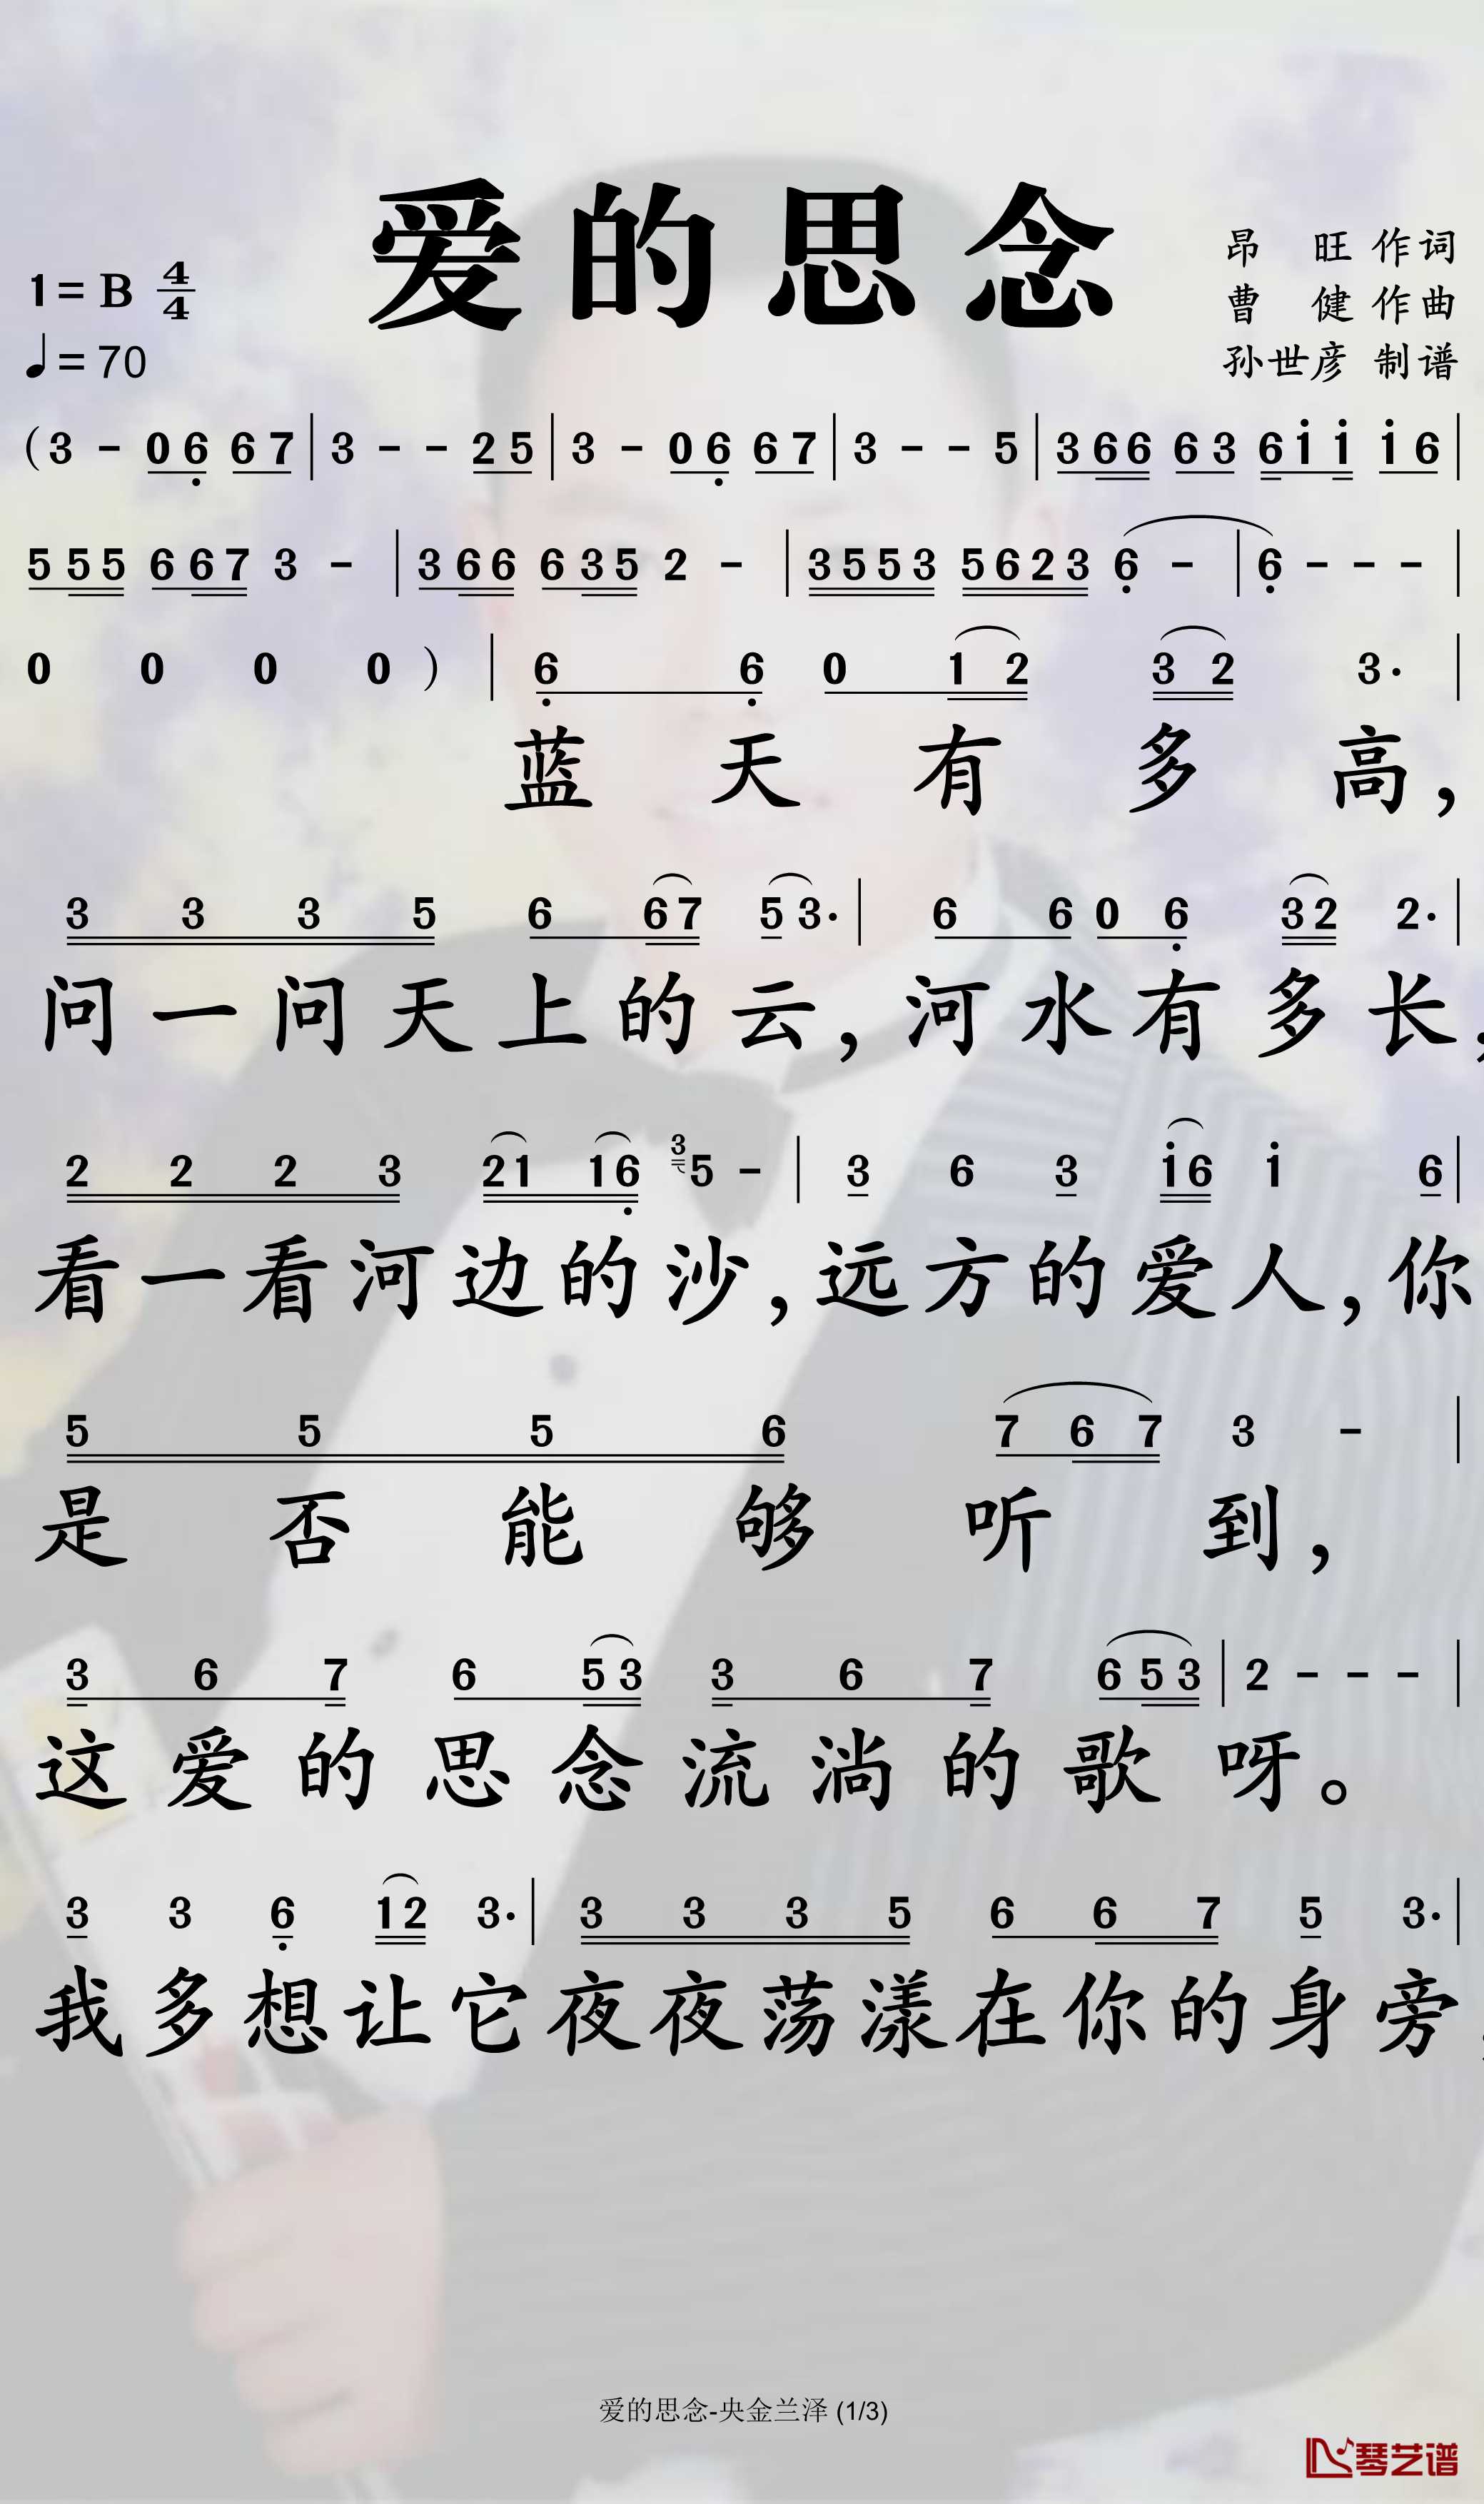 爱的思念
昂 旺 作词
1=B 4/4
曹 健 作曲
♩=70
孙世彦 制谱
(3 - 0 6̣ 6 7 | 3 - - 2 5 | 3 - 0 6̣ 6 7 | 3 - - 5 | 3 6 6 6 3 6 i i i 6 |
5 5 5 6 6 7 3 - | 3 6 6 6 3 5 2 - | 3 5 5 3 5 6 2 3 6̣ - | 6̣ - - - |
0 0 0 0 ) | 6̣ 6̣ 0 1 2 3 2 3· |
蓝天有多高，
3 3 3 5 6 6 7 5 3· | 6 6 0 6̣ 3 2 2· |
问一问天上的云，河水有多长，
2 2 2 3 2 1 1 6̣ 3 5 - | 3 6 3 i 6 i 6 |
看一看河边的沙，远方的爱人，你
5 5 5 6 7 6 7 3 - |
是否能够听到，
3 6 7 6 5 3 3 6 7 6 5 3 | 2 - - - |
这爱的思念流淌的歌呀。
3 3 6̣ 1 2 3· | 3 3 3 5 6 6 7 5 3· |
我多想让它夜夜荡漾在你的身旁，
爱的思念-央金兰泽 (1/3)
琴艺谱